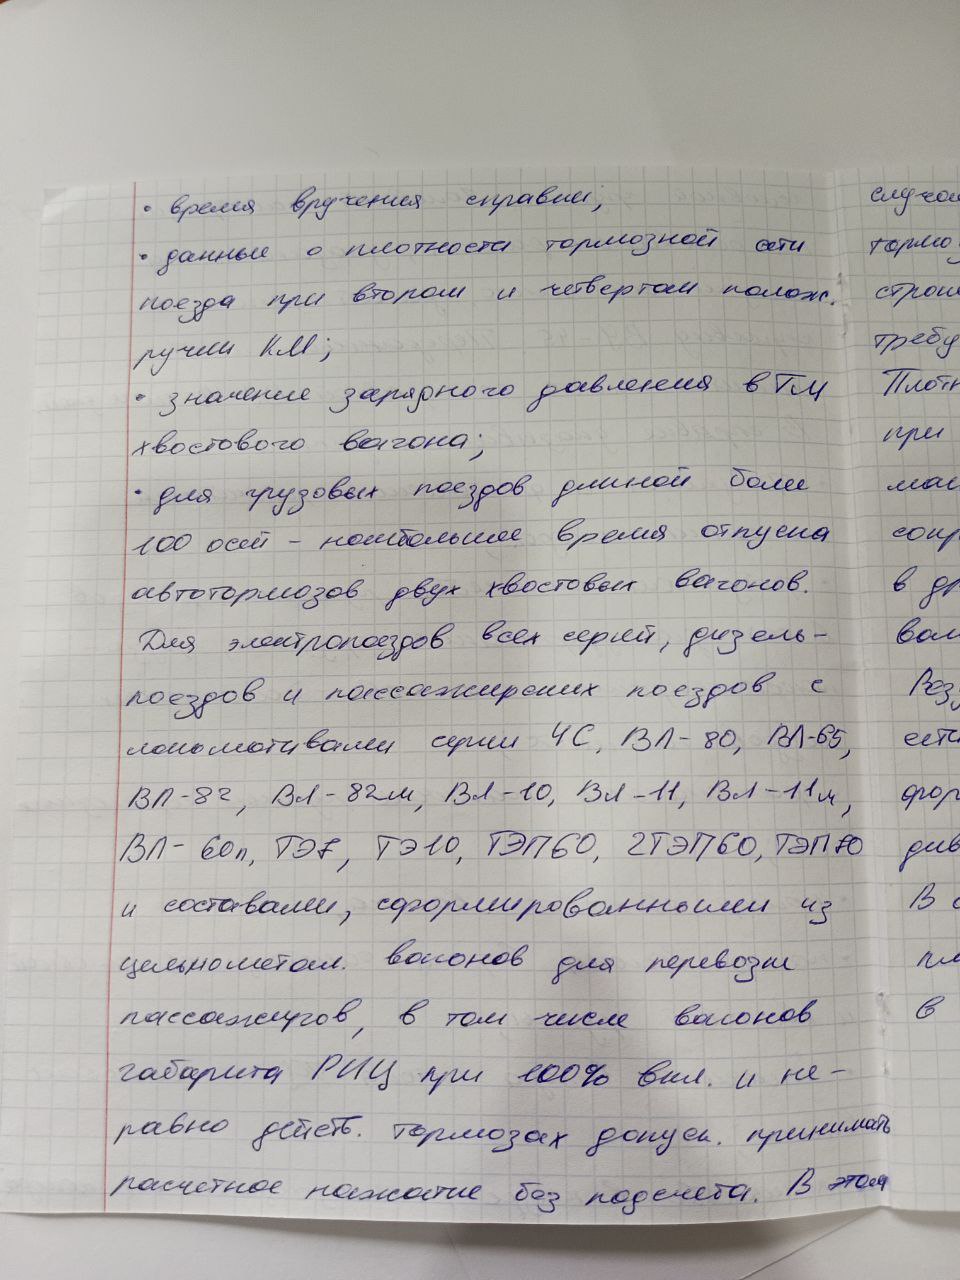 • время вручения справки;
• данные о плотности тормозной сети
поезда при втором и четвертом полож.
ручки КМ;
• значение зарядного давления в ТМ
хвостового вагона;
• для грузовых поездов длиной более
100 осей - наибольшее время отпуска
автотормозов двух хвостовых вагонов.
Для электропоездов всех серий, дизель-
поездов и пассажирских поездов с
локомотивами серии ЧС, ВЛ-80, ВЛ-65,
ВЛ-82, ВЛ-82м, ВЛ-10, ВЛ-11, ВЛ-11м,
ВЛ-60п, ТЭ7, ТЭ10, ТЭП60, 2ТЭП60, ТЭП70
и составами, сформированными из
цельнометал. вагонов для перевозки
пассажиров, в том числе вагонов
габарита РИЦ при 100% вкл. и не-
равно действ. тормозах допуск. принимать
расчетное нажатие без подсчета. В этом
случа
тормо
строи
требу
Плотн
при
мас
сокр
в др
вам
Воз
есть
фор
див
В с
пл
в